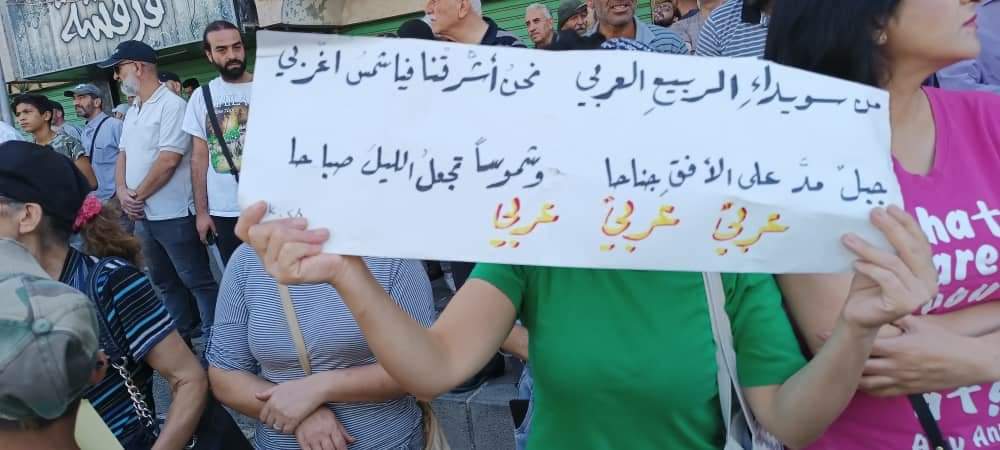 قرقشة
من سويداءِ الربيعِ العربي نحنُ أشرَقنا فيا شمسُ اغربي
جبلٌ مدَّ على الأفقِ جناحا وشموساً تجعلُ الليلَ صباحا
عربيٌ عربيٌ عربي
hat
are